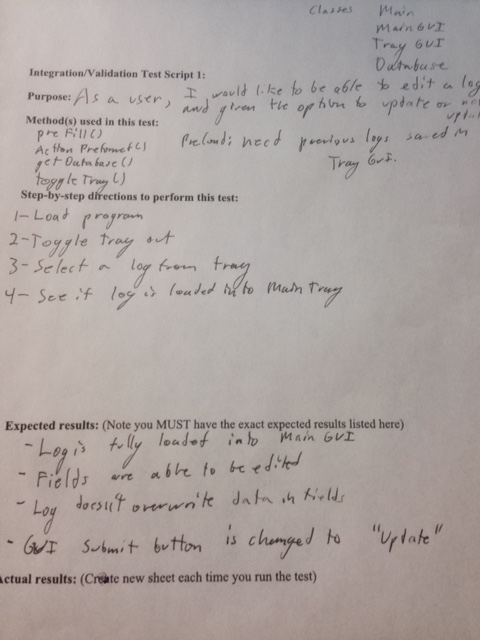 Classes Main
Main GUI
Tray GUI
Database
Integration/Validation Test Script 1:
Purpose: As a user, I would like to be able to edit a log
and given the option to update or not
Method(s) used in this test:
preFill()
Action Preformed()
getDatabase()
toggleTray()
need previous logs saved in
Tray GUI.
Step-by-step directions to perform this test:
1- Load program
2- Toggle tray out
3- Select a log from tray
4- See if log is loaded into Main Tray
Expected results: (Note you MUST have the exact expected results listed here)
- Log is fully loaded into Main GUI
- Fields are able to be edited
- Log doesn't overwrite data in fields
- GUI Submit button is changed to "Update"
Actual results: (Create new sheet each time you run the test)